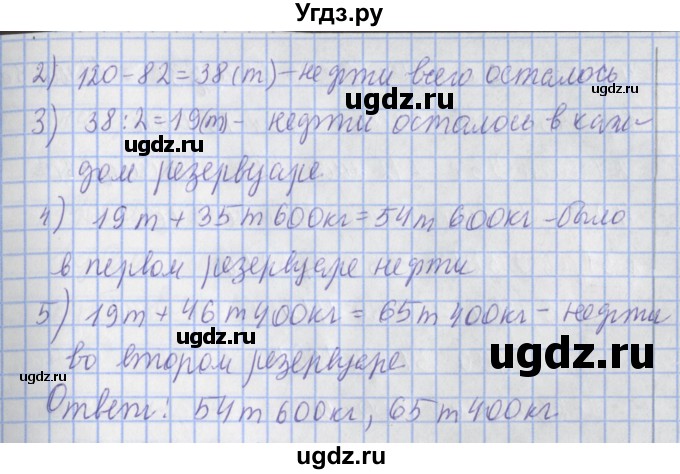 Угдз.ру
2) 120-82=38(т)-нефти всего осталось
ugdz.ru
3) 38:2=19(т)- нефти осталось в каж-
ugdz.ru
дом резервуаре
4) 19т+35т 600кг=54т 600кг-было
в первом резервуаре нефти
ugdz.ru
5) 19т+46т 400кг=65т 400кг- нефти
ugdz.ru
во втором резервуаре
ugdz.ru
Ответ: 54т 600кг, 65т 400кг
ugdz.ru